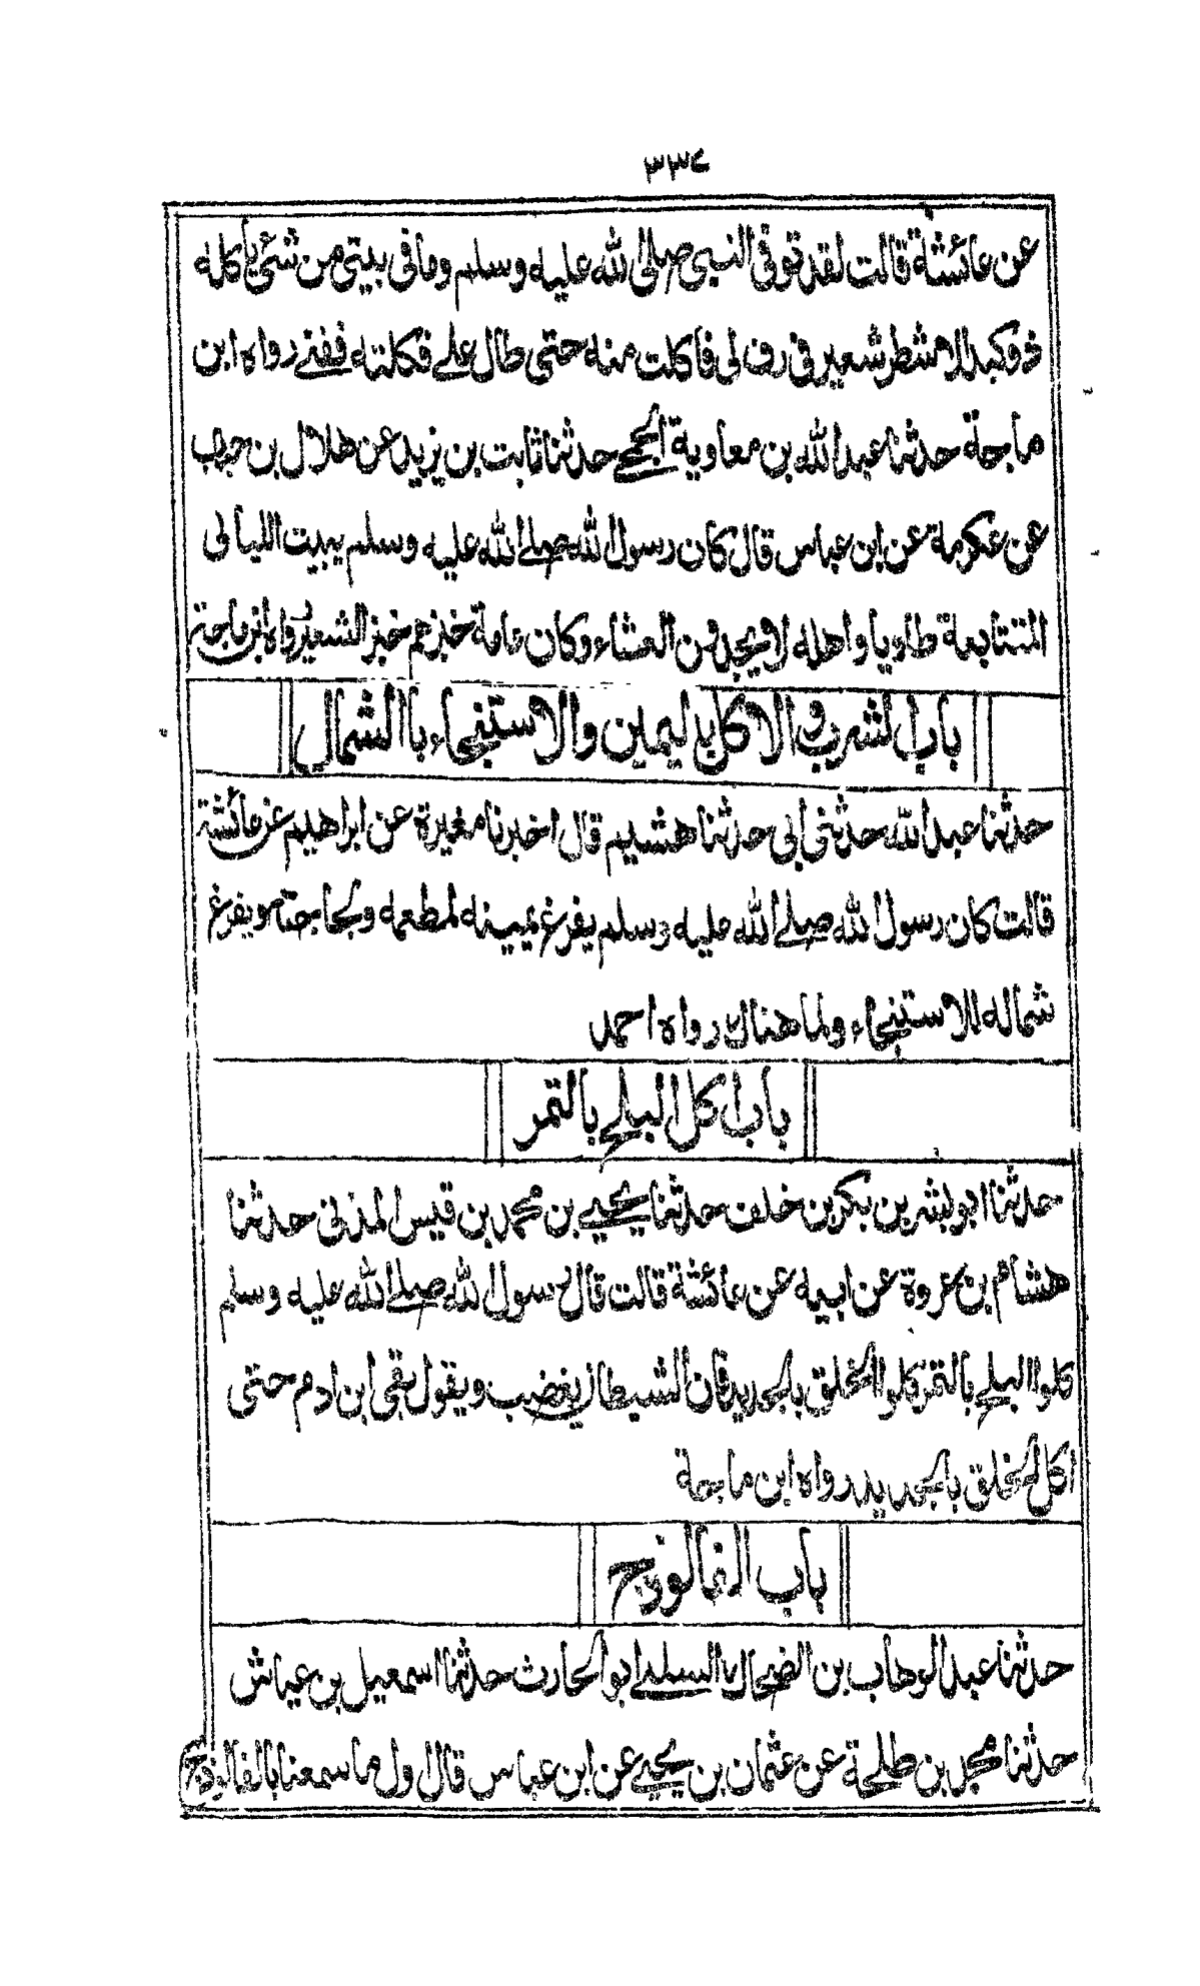 ٣٣٤
عن عائشة قالت لقد توفي النبي صلى الله عليه وسلم وما في بيتي من شئ يأكله
ذو كبد الا شطر شعير في رف لي فاكلت منه حتى طال علے فكلته ففنے رواه ابن
ماجة حدثنا عبد الله بن معاوية الجمحے حدثنا ثابت بن يزيد عن هلال بن خباب
عن عكرمة عن ابن عباس قال كان رسول الله صلے الله عليه وسلم يبيت الليالي
المتتابعة طاويا واهله لا يجدون العشاء وكان عامة خبزهم خبز الشعير رواه ابن ماجة
باب الشرب والاكل باليمين والاستنجاء باالشمال
حدثنا عبد الله حدثني ابي حدثنا هشيم قال اخبرنا مغيرة عن ابراهيم عن عائشة
قالت كان رسول الله صلے الله عليه وسلم يفرغ يمينه لمطعمه ولحاجته ويفرغ
شماله للاستنجاء ولما هناك رواه احمد
باب اكل البلح بالتمر
حدثنا ابو بشر بن بكر بن خلف حدثنا يحيے بن محمد بن قيس المدني حدثنا
هشام بن عروة عن ابيه عن عائشة قالت قال رسول الله صلے الله عليه وسلم
كلوا البلح بالتمر كلوا الخلق بالجديد فان الشيطان يغضب ويقول بقي ابن ادم حتى
اكل الخلق بالجديد رواه ابن ماجة
باب الفالوذج
حدثنا عبد الوهاب بن الضحاك السلمے ابو الحارث حدثنا اسمعيل بن عياش
حدثنا محمد بن طلحة عن عثمان بن يحيے عن ابن عباس قال اول ما سمعنا بالفالوذج